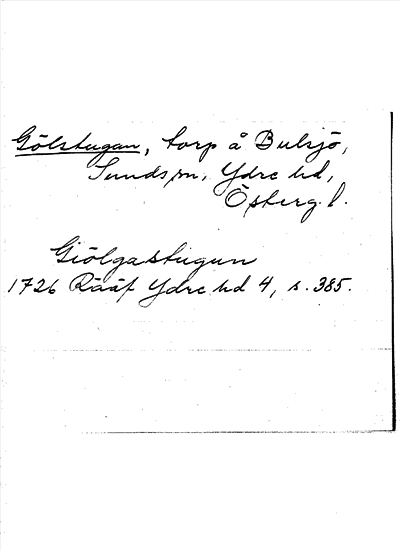 Gölstugan, torp å Bulsjö,
Sunds sn, Ydre hd,
Österg. l.
Giölgastugun
1726 Rääf Ydre hd 4, s. 385.